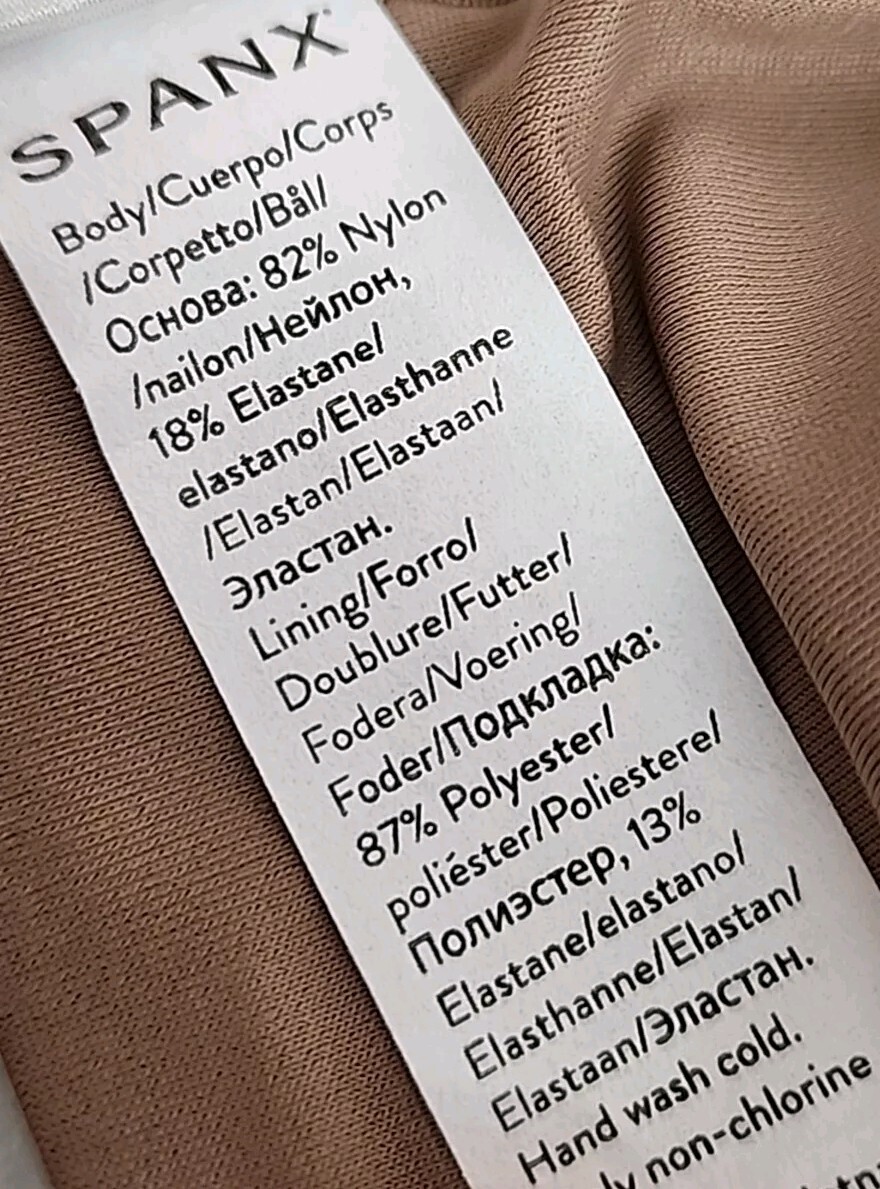 SPANX
Body/Cuerpo/Corps
/Corpetto/Bål/
Основа: 82% Nylon
/nailon/Нейлон,
18% Elastane/
elastano/Elasthanne
/Elastan/Elastaan/
Эластан.
Lining/Forro/
Doublure/Futter/
Fodera/Voering/
Foder/Подкладка:
87% Polyester/
poliéster/Poliestere/
Полиэстер, 13%
Elastane/elastano/
Elasthanne/Elastan/
Elastaan/Эластан.
Hand wash cold.
non-chlorine